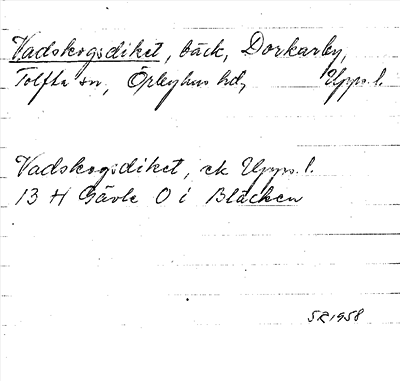 Vadskogsdiket, bäck, Dorkarby,
Tolfta sn, Örbyhus hd, Upps. l.
Vadskogsdiket, ek Upps. l.
13 H Gävle O i Bläcken
SR 1958